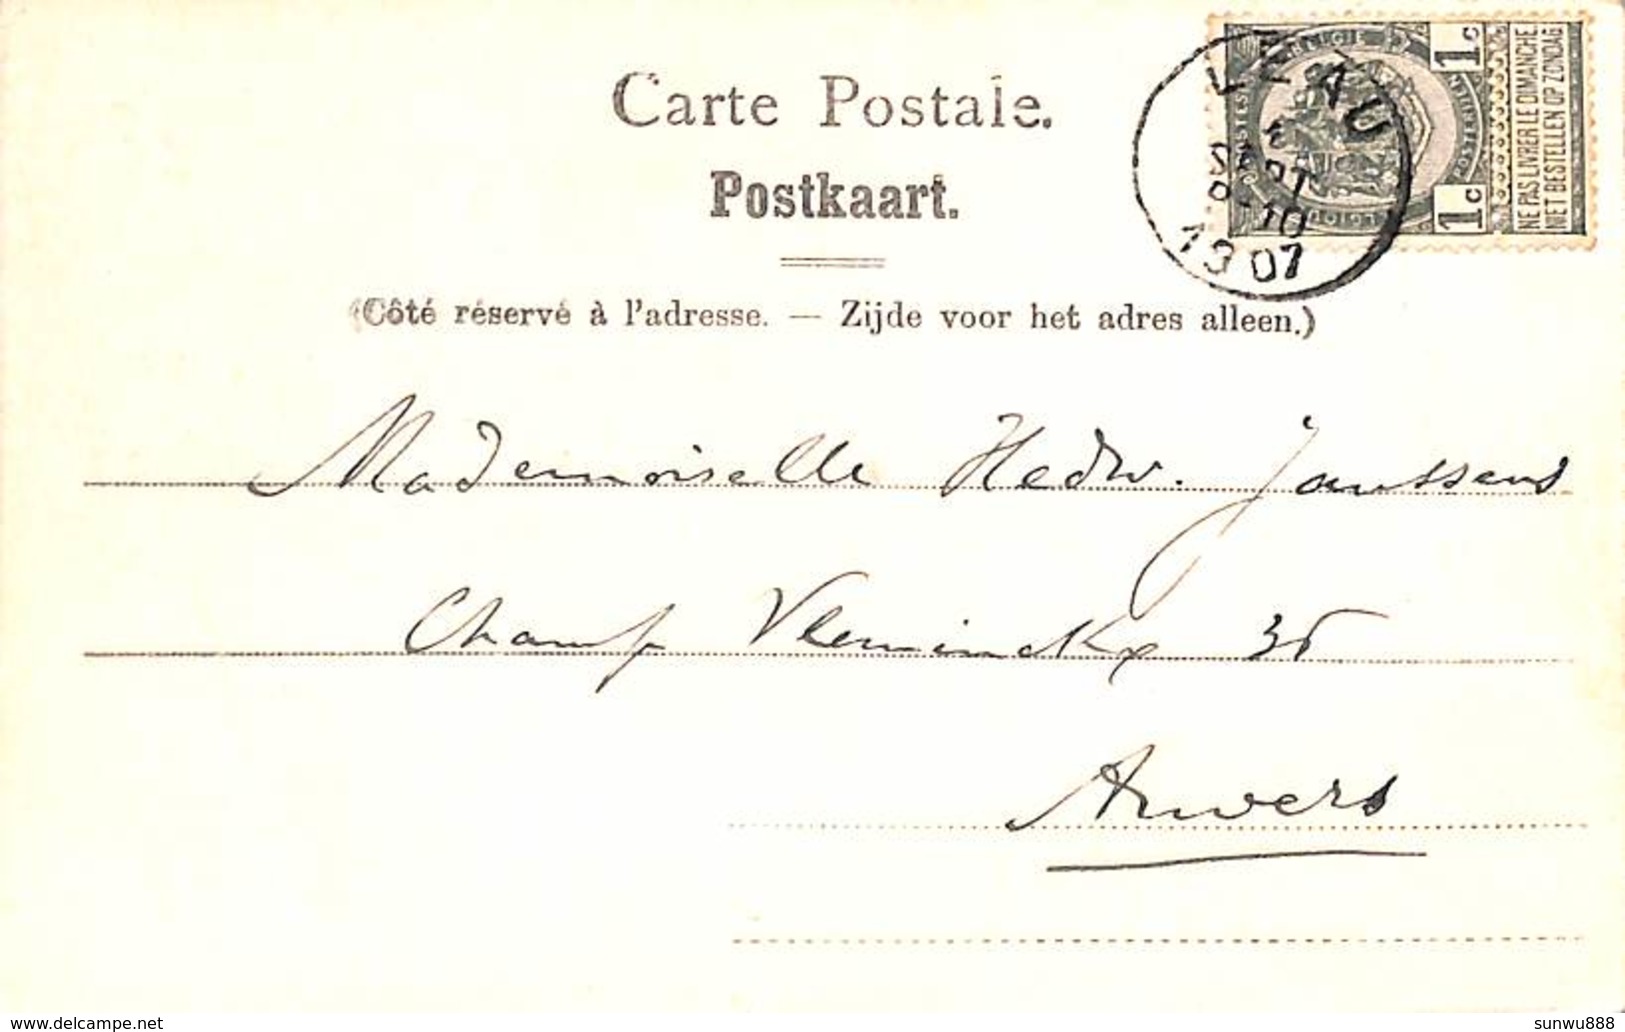 Carte Postale.
Postkaart.
(Côté réservé à l'adresse. — Zijde voor het adres alleen.)
BELGIE
1c
1c
NE PAS LIVRER LE DIMANCHE
NIET BESTELLEN OP ZONDAG
SEPT
8-10
1907
Mademoiselle Hedw. Janssens
Champ Vleminckx 35
Anvers
delcampe.net
sunwu888